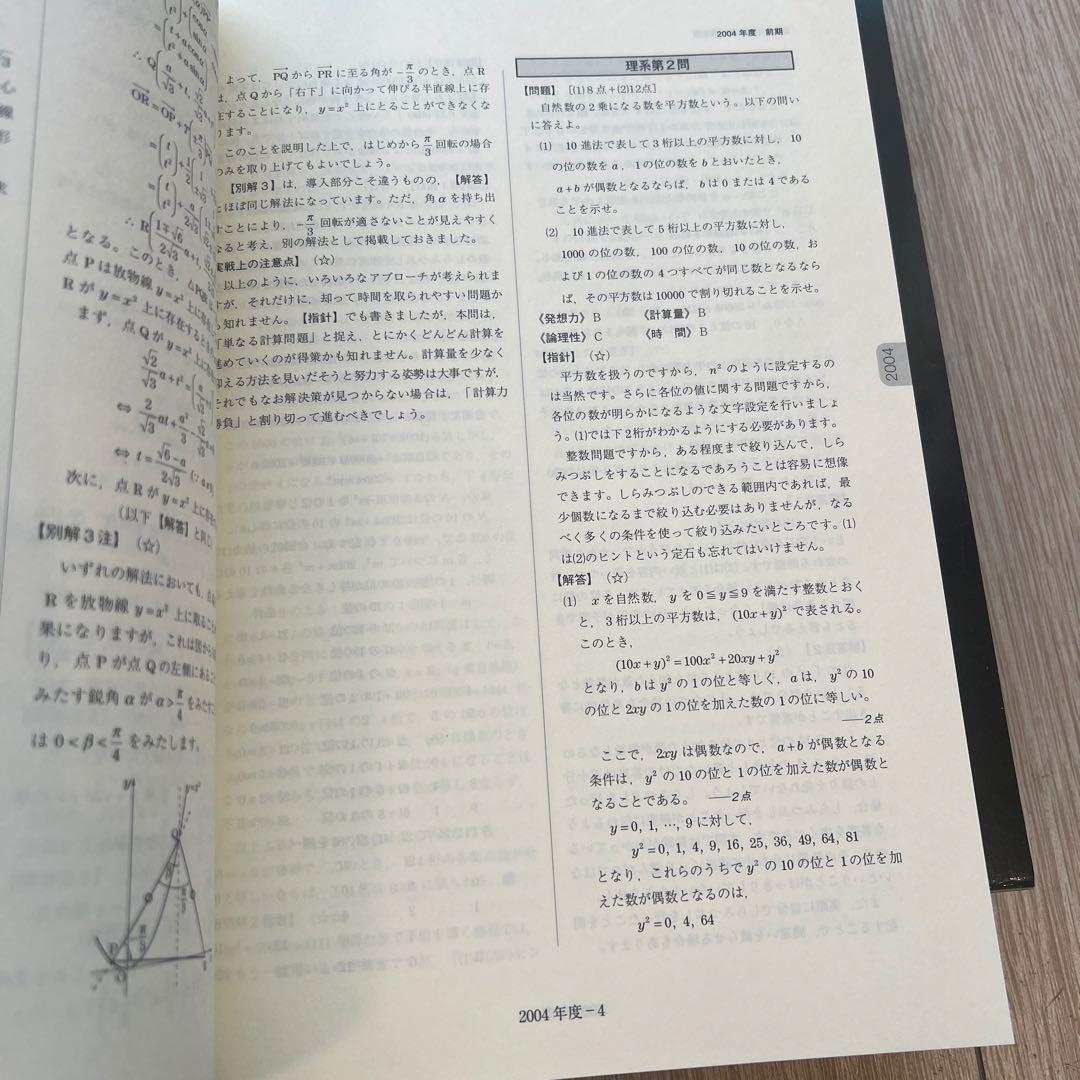 よって, PQから PRに至る角が -π/3 のとき, 点R
は, 点Qから「右下」に向かって伸びる半直線上に存
在することになり, y=x² 上にとることができなくな
ります。
このことを説明した上で, はじめから π/3 回転の場合
のみを取り上げてもよいでしょう。
【別解3】は, 導入部分こそ違うものの, 【解答】
とほぼ同じ解法になっています。ただ, 角αを持ち出
すことにより, -π/3 回転が適さないことが見えやすく
なると考え, 別の解法として掲載しておきました。
実戦上の注意点】(☆)
以上のように, いろいろなアプローチが考えられま
すが, それだけに, 却って時間を取られやすい問題か
も知れません。【指針】でも書きましたが, 本問は,
「単なる計算問題」と捉え, とにかくどんどん計算を
進めていくのが得策かも知れません。計算量を少なく
抑える方法を見いだそうと努力する姿勢は大事ですが,
それでもなお解決策が見つからない場合は, 「計算力
勝負」と割り切って進むべきでしょう。
となる。このとき,
点Pは放物線 y=x² 上に
Rが y=x² 上に存在すると
まず, 点Qが y=x² 上に
次に, 点Rが y=x² 上に
(以下【解答】と同じ
【別解3注】(☆)
いずれの解法においても,
Rを放物線 y=x² 上に取る
果になりますが, これは図から
り, 点Pが点Qの左側にある
みたす鋭角αがα>π/4 をみたす
は 0<β<π/4 をみたします。
2004年度 前期
理系第2問
【問題】[(1)8点+(2)12点]
自然数の2乗になる数を平方数という。以下の問い
に答えよ。
(1) 10進法で表して3桁以上の平方数に対し, 10
の位の数をa, 1の位の数をbとおいたとき,
a+bが偶数となるならば, bは0または4である
ことを示せ。
(2) 10進法で表して5桁以上の平方数に対し,
1000の位の数, 100の位の数, 10の位の数, お
よび1の位の数の4つすべてが同じ数となるなら
ば, その平方数は10000で割り切れることを示せ。
《発想力》B 《計算量》B
《論理性》C 《時 間》B
【指針】(☆)
平方数を扱うのですから, n² のように設定するの
は当然です。さらに各位の値に関する問題ですから,
各位の数が明らかになるような文字設定を行いましょ
う。(1)では下2桁がわかるようにする必要があります。
整数問題ですから, ある程度まで絞り込んで, しら
みつぶしをすることになるであろうことは容易に想像
できます。しらみつぶしのできる範囲内であれば, 最
少個数になるまで絞り込む必要はありませんが, なる
べく多くの条件を使って絞り込みたいところです。(1)
は(2)のヒントという定石も忘れてはいけません。
【解答】(☆)
(1) xを自然数, yを0≦y≦9を満たす整数とおく
と, 3桁以上の平方数は, (10x+y)² で表される。
このとき,
(10x+y)²=100x²+20xy+y²
となり, bはy²の1の位と等しく, aは, y²の10
の位と2xyの1の位を加えた数の1の位に等しい。
——2点
ここで, 2xyは偶数なので, a+bが偶数となる
条件は, y²の10の位と1の位を加えた数が偶数と
なることである。 ——2点
y=0, 1, …, 9に対して,
y²=0, 1, 4, 9, 16, 25, 36, 49, 64, 81
となり, これらのうちでy²の10の位と1の位を加
えた数が偶数となるのは,
y²=0, 4, 64
2004
2004年度-4